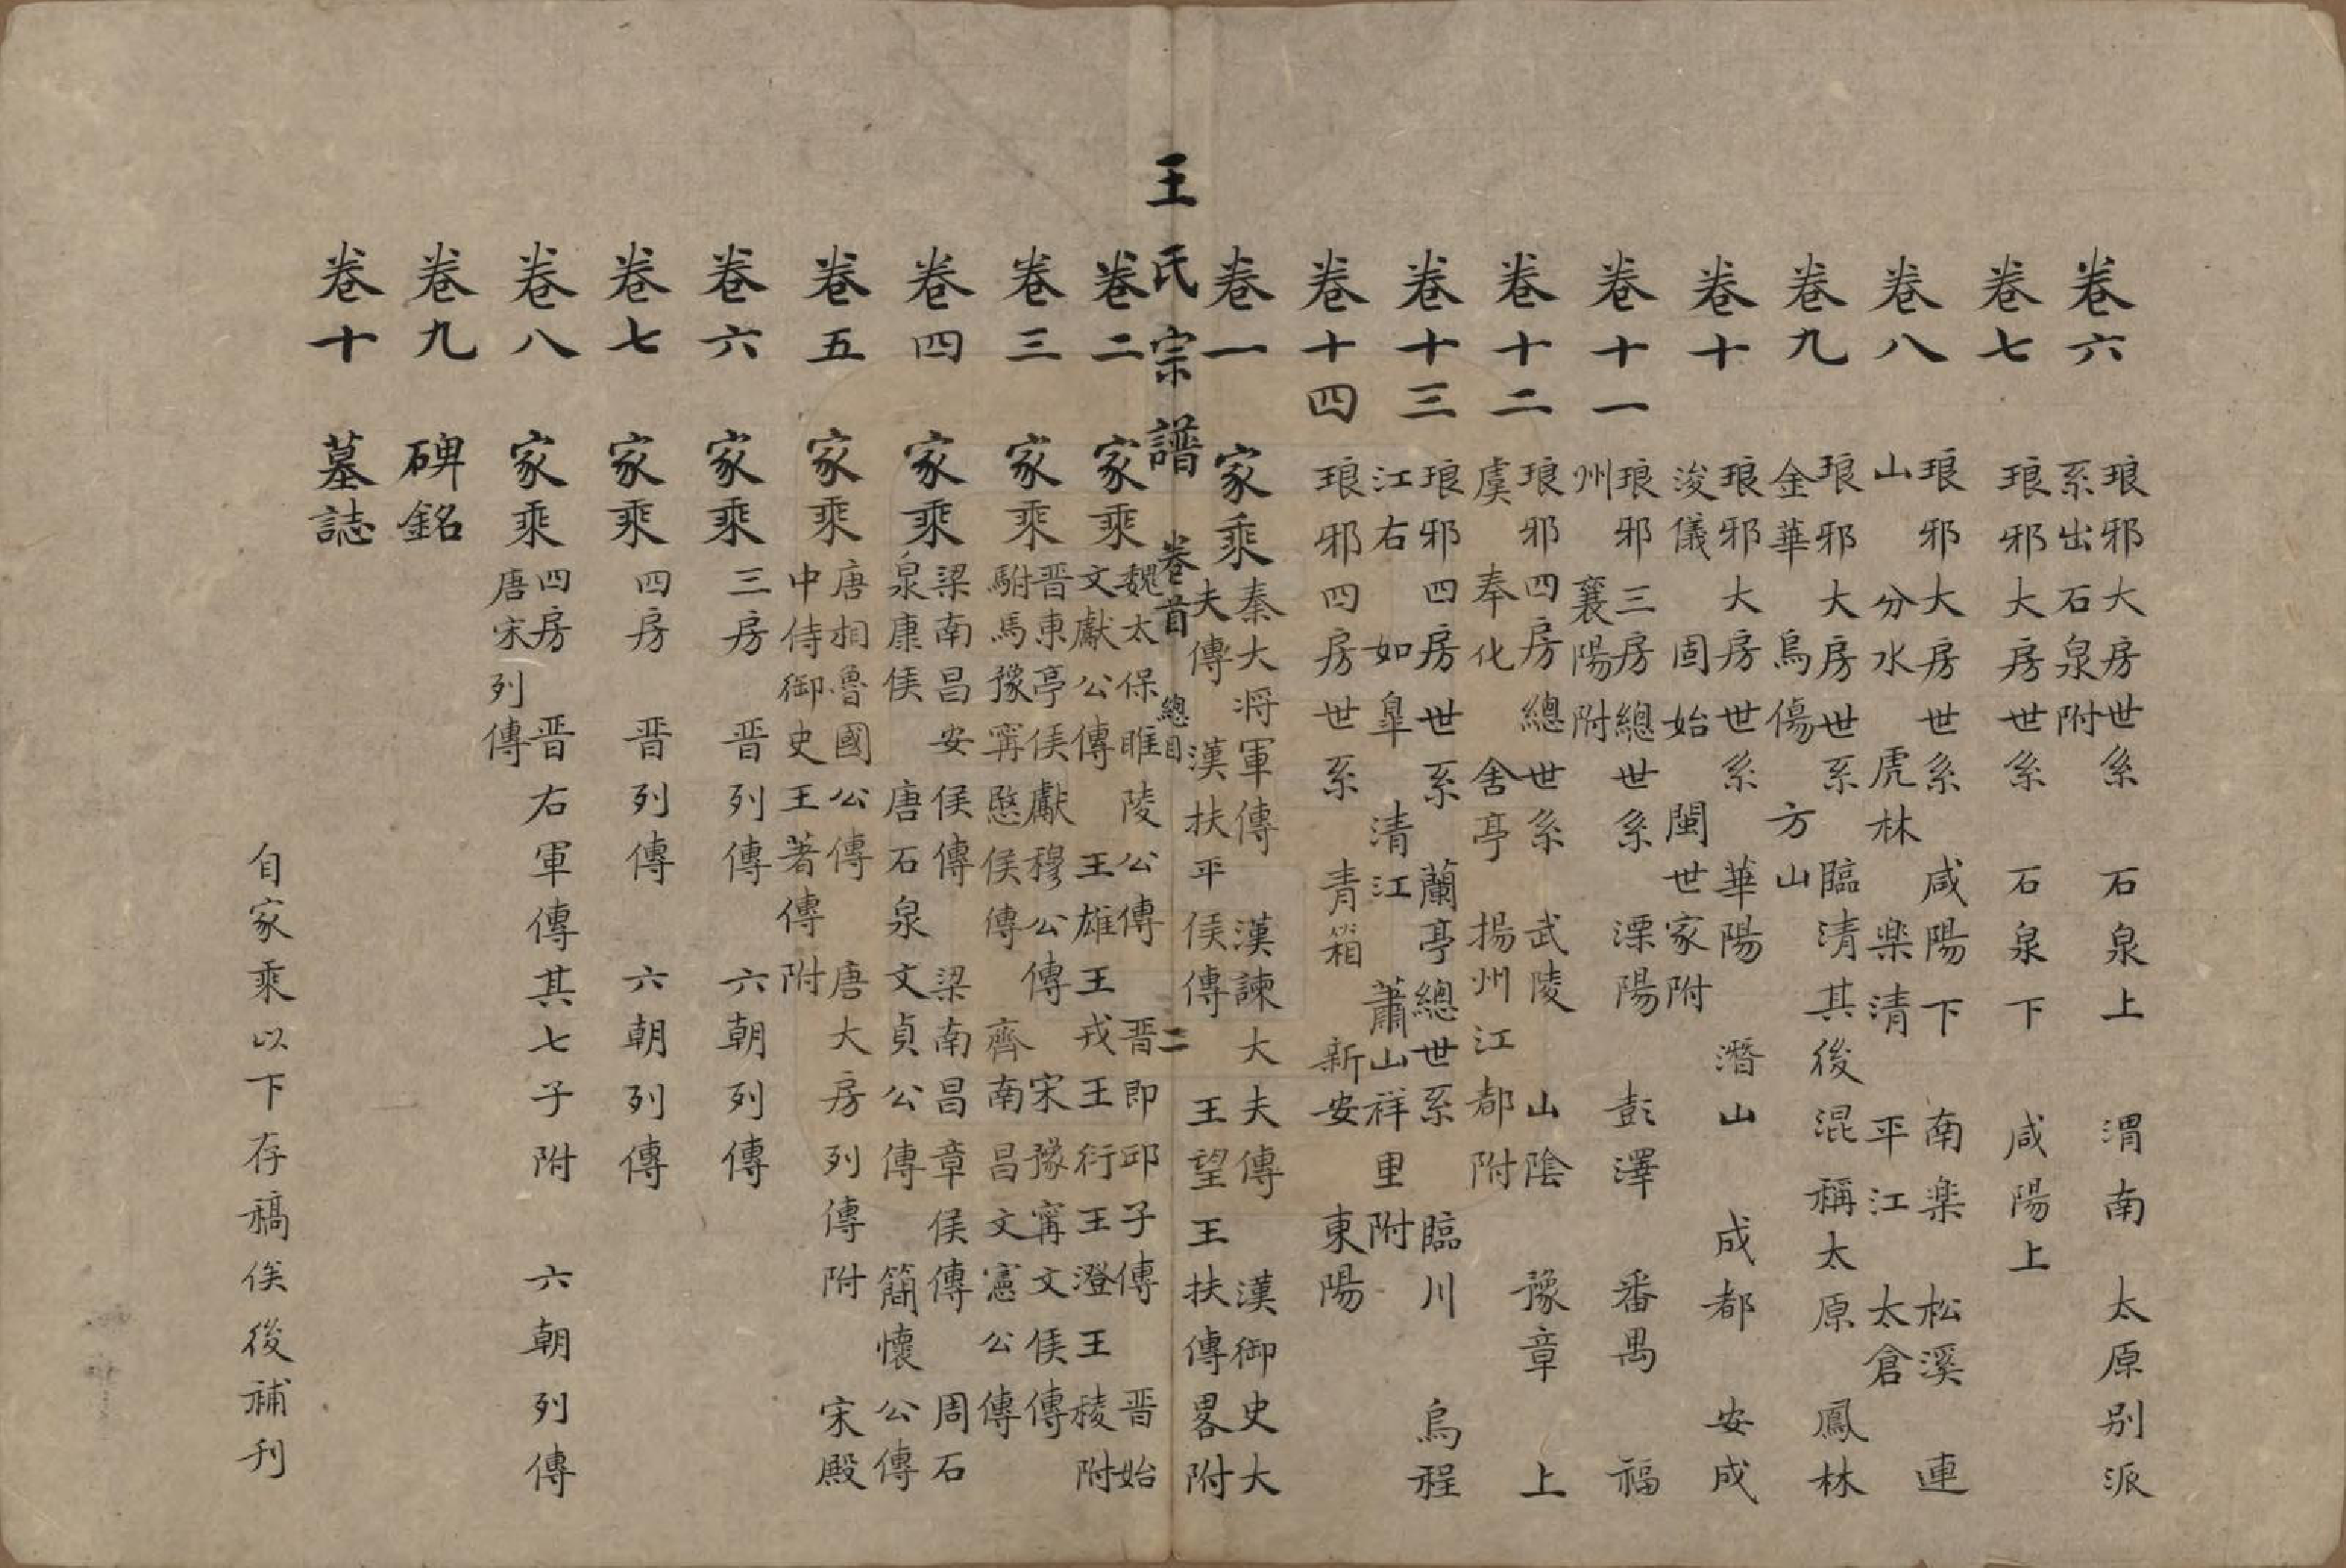 卷六 琅邪大房世系 石泉上 渭南 太原別派
系出石泉附
卷七 琅邪大房世系 石泉下 咸陽上
卷八 琅邪大房世系 咸陽下 南楽 松溪 連
山 分水 虎林 楽清 平江 太倉
卷九 琅邪大房世系 臨清其後混稱太原 鳳林
金華 烏傷 方山
卷十 琅邪大房世系 華陽 潛山 成都 安成
浚儀 固始 閩世家附
卷十一 琅邪三房總世系 溧陽 彭澤 番禺 福
州 襄陽附
卷十二 琅邪四房總世系 武陵 山陰 豫章 上
虞 奉化 舍亭 揚州江都附
卷十三 琅邪四房世系 蘭亭總世系 臨川 烏程
江右 如皐 清江 蕭山祥里附
卷十四 琅邪四房世系 青箱 新安 東陽
卷一 家乘 秦大将軍傳 漢諫大夫傳 漢御史大
夫傳 漢扶平侯傳 王望王扶傳畧附
王氏宗譜 卷首 總目 二
卷二 家乘 魏太保睢陵公傳 晋即邱子傳 晋始
文獻公傳 王雄王戎王衍王澄王稜附
卷三 家乘 晋東亭侯獻穆公傳 宋豫寗文侯傳
駙馬豫寗愍侯傳 齊南昌文憲公傳
卷四 家乘 梁南昌安侯傳 梁南昌章侯傳 周石
泉康侯 唐石泉文貞公傳 簡懷公傳
卷五 家乘 唐相魯國公傳 唐大房列傳附 宋殿
中侍御史王著傳附
卷六 家乘 三房 晋列傳 六朝列傳
卷七 家乘 四房 晋列傳 六朝列傳
卷八 家乘 四房 晋右軍傳其七子附 六朝列傳
唐宋列傳
卷九 碑銘
卷十 墓誌
自家乘以下存稿俟後補刊